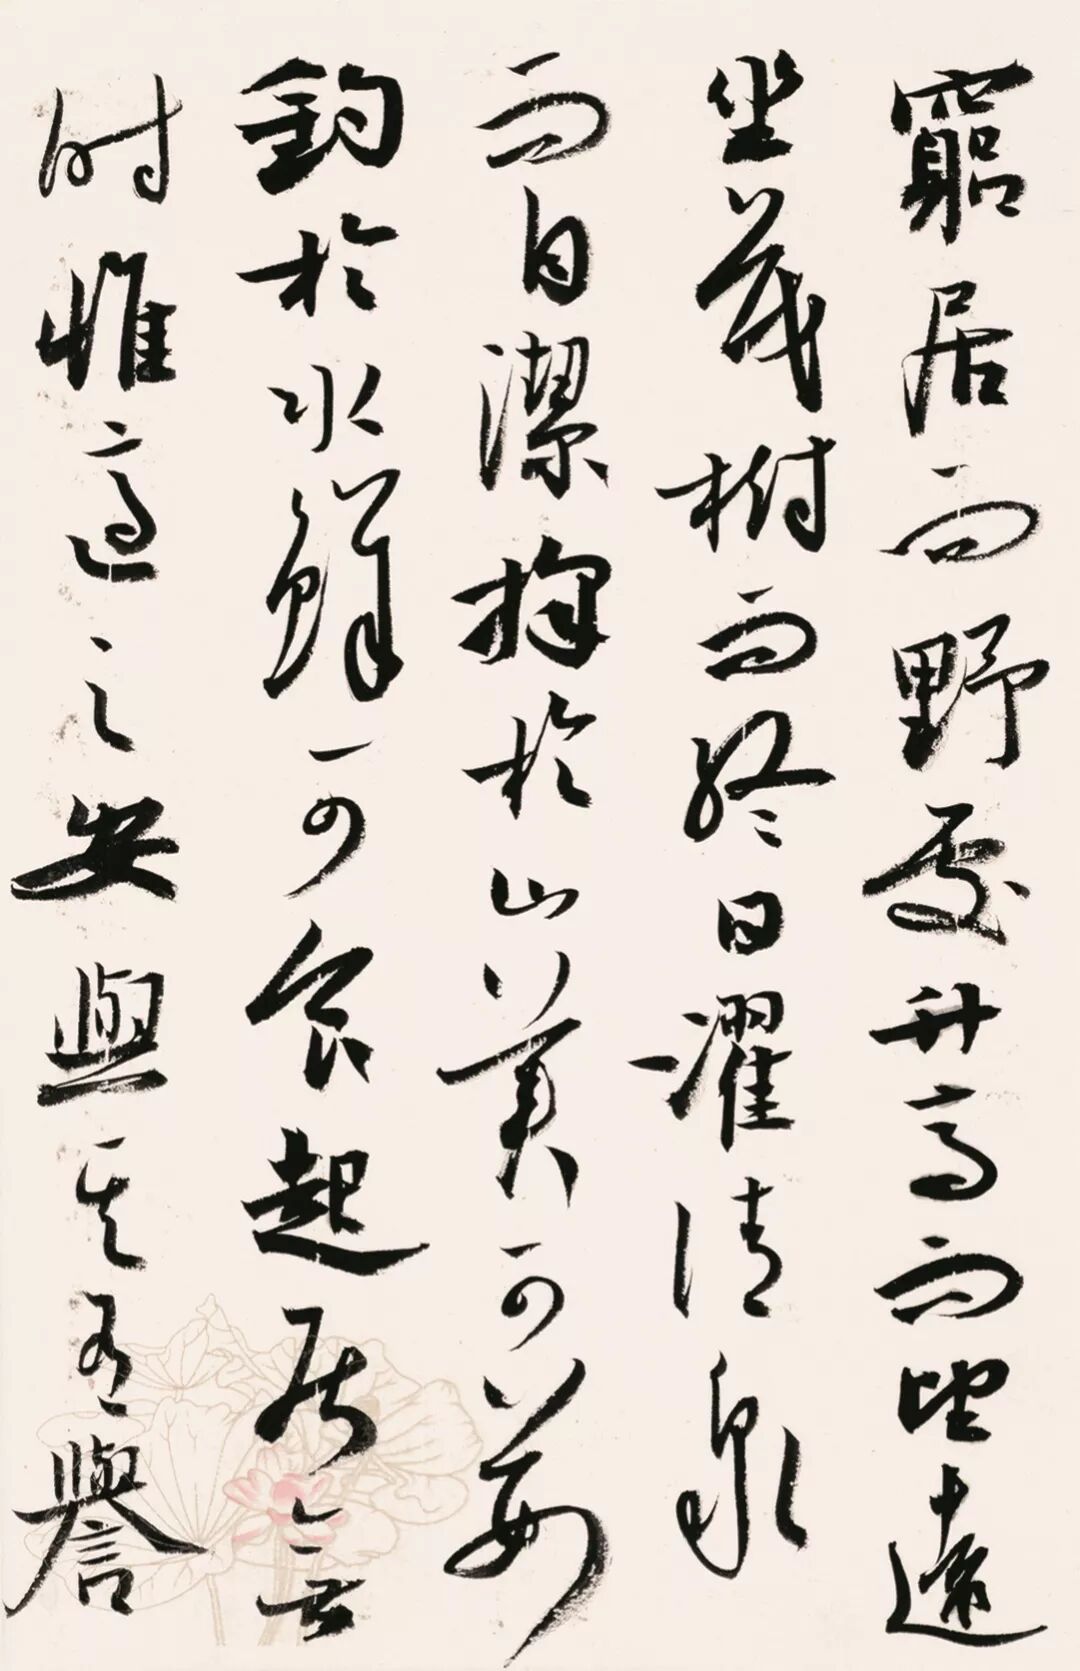 窮居而野處升高而望遠
坐茂樹而終日濯清泉
而自潔採於山美可茹
釣於水鮮可食起居無
時惟適之安與其有譽